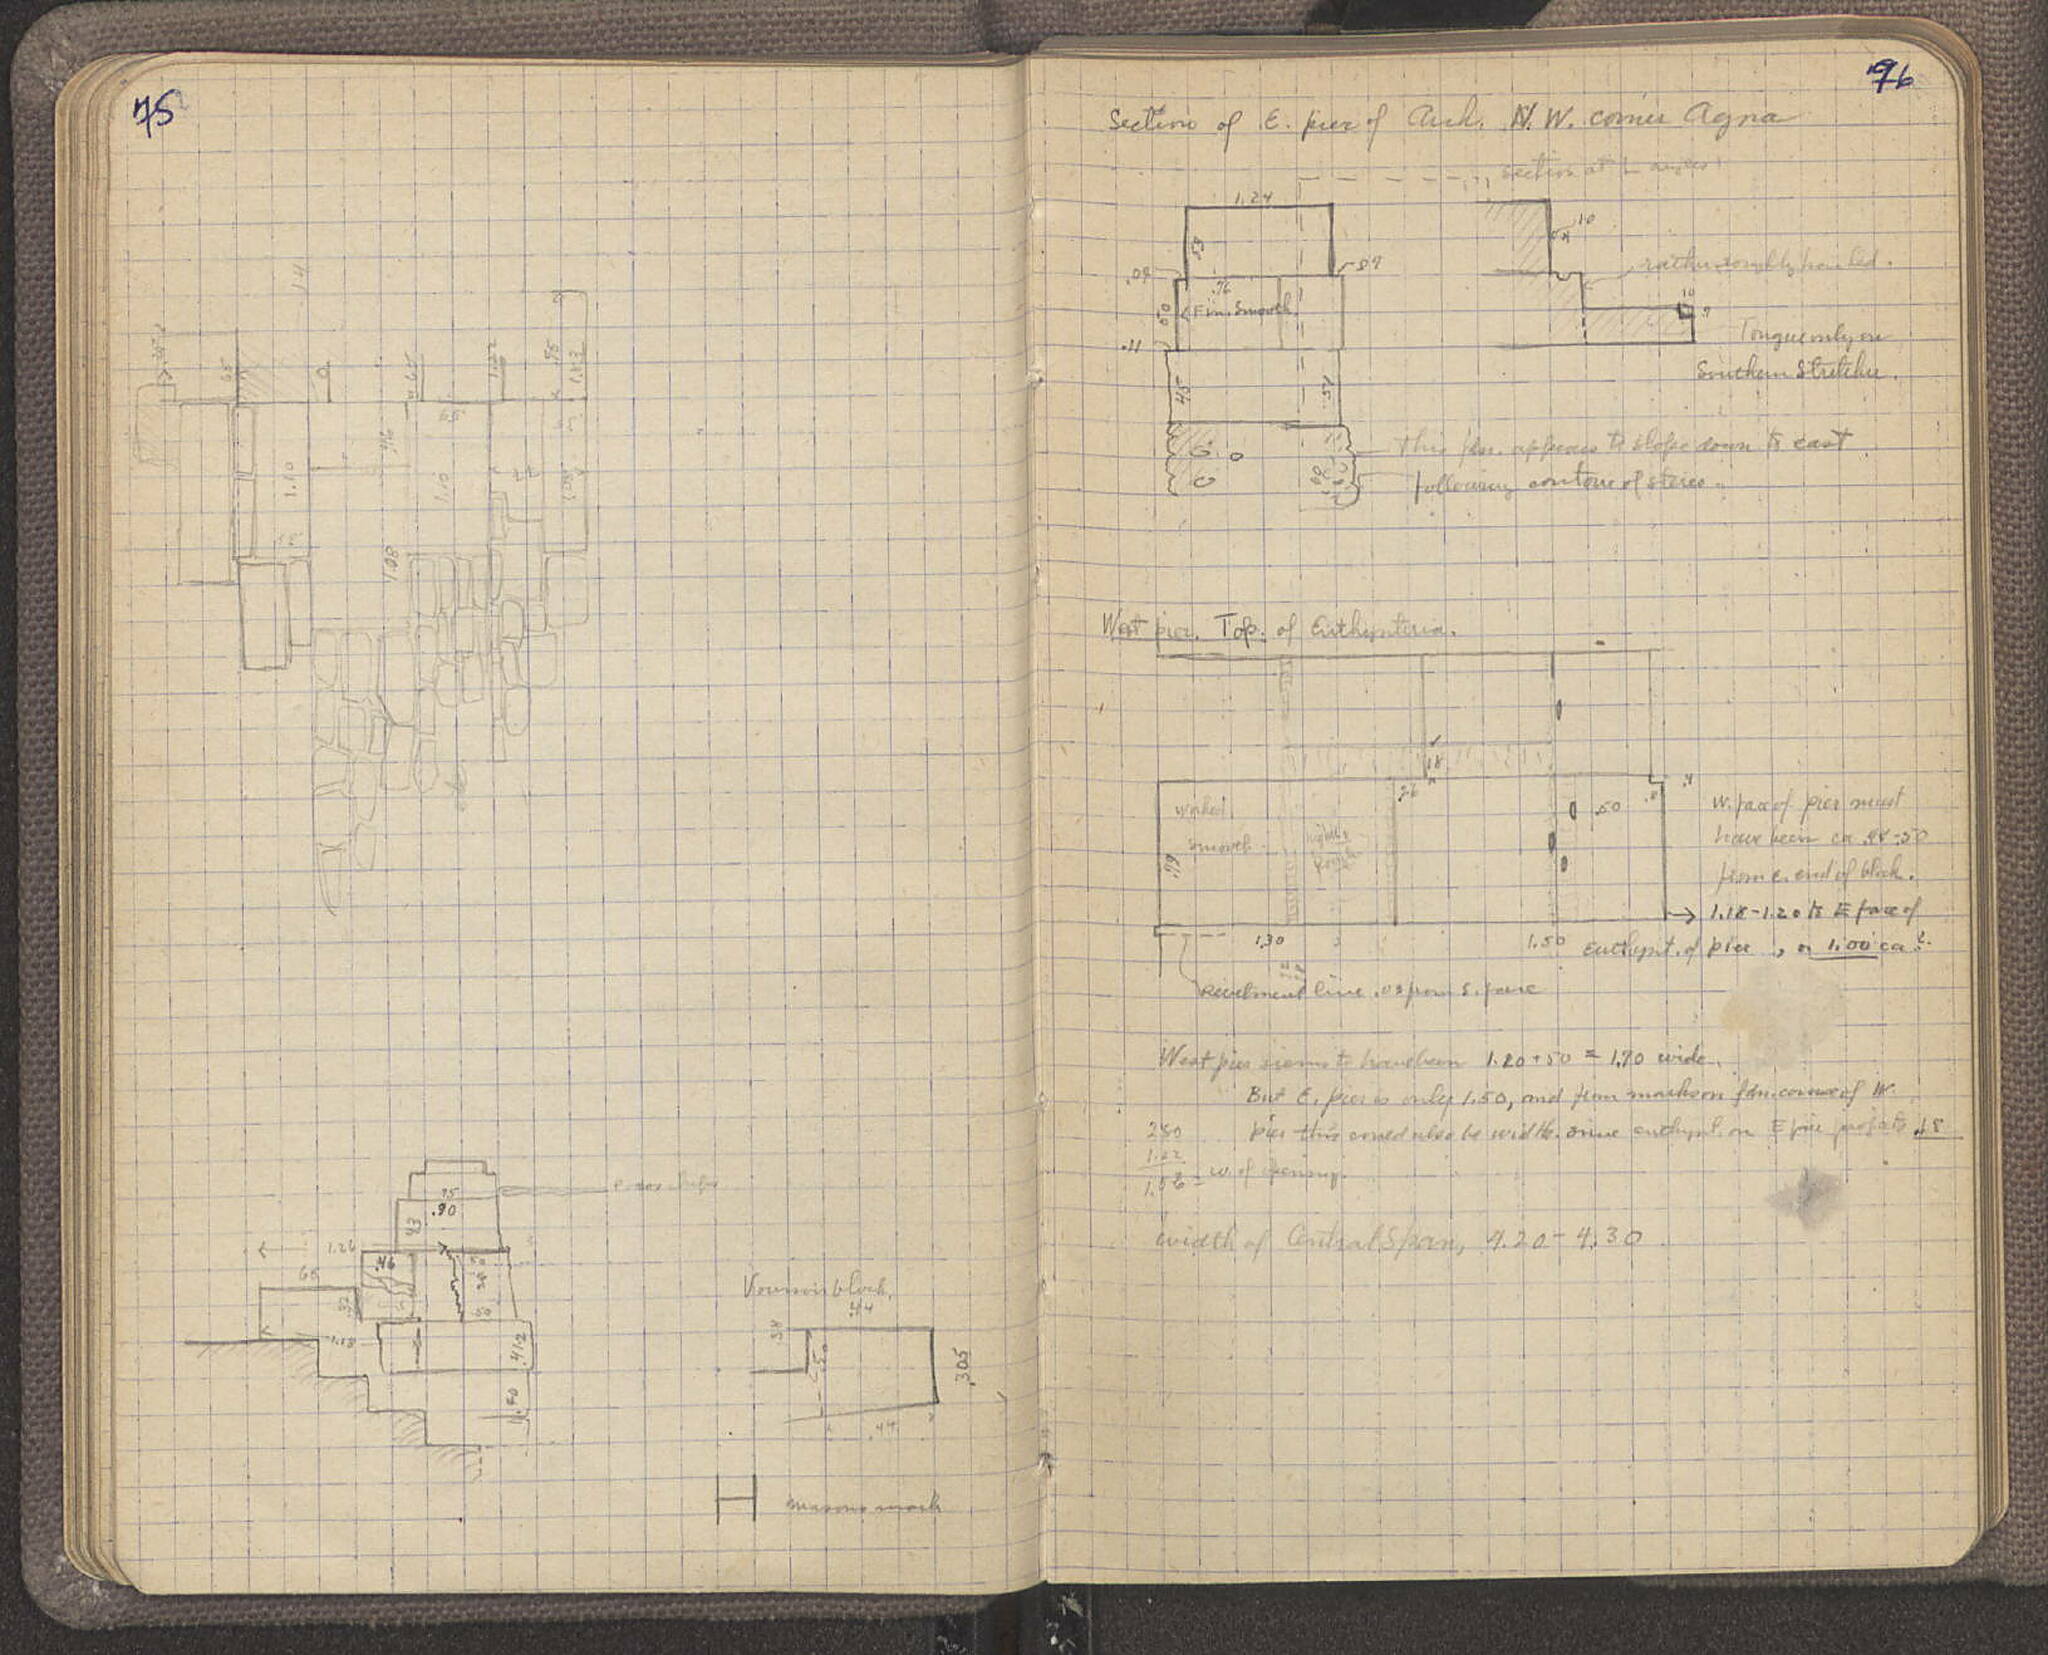 75
14
.65
0
.65
1.22
.95
1.43
.46
1.10
1.10
1.08
.75
.90
.43
1.26
.46
.65
.50
1.18
.412
.50
Voussoir block.
.44
.38
.50
.305
.44
H masons mark
76
Section of E. pier of Arch. N.W. corner Agora
section at ∟ angles
1.24
.10
.53
.09
.07
rather roughly worked.
.76
.10
.50
< Fin. Smooth
.11
Tongue only on
Southern Stretcher.
.45
.51
This fdn. appears to slope down to east
following contour of stereo.
West pier. Top. of Euthynteria.
.18
.26
.50
worked
smooth
lightly
rough
.79
W. face of pier must
have been ca .48-.50
from e. end of block.
→ 1.18-1.20 to E face of
1.30
1.50
Euthynt. of pier, or 1.00 ca?
Revetment line .02 from S. face
West pier seems to have been 1.20 + 50 = 1.70 wide.
But E. pier is only 1.50, and from marks on fdn. course of W.
pier this could also be width. since euthynt. on E pier projects .18
2.80
1.22
1.58 = w. of opening.
width of Central Span, 4.20 - 4.30